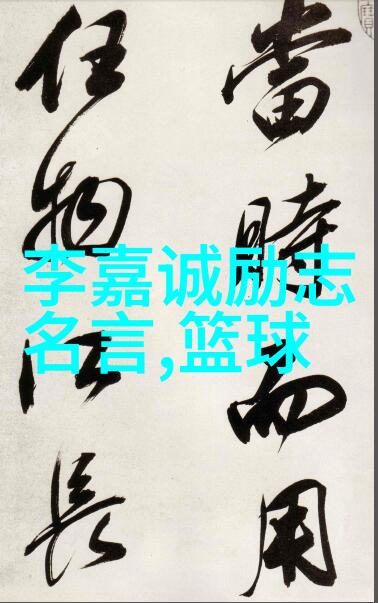 當時而用
任物長
李嘉诚励志
名言,篮球